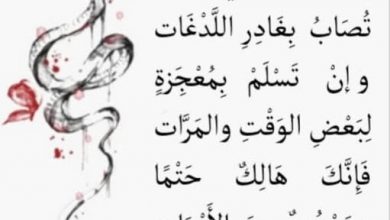 تُصَابُ بِغَادِرِ اللَّدْغَات
و إنْ تَسْلَمْ بِمُعْجَزةٍ
لِبَعْضِ الوَقْتِ والمَرَّات
فَإنَّكَ هَالِكٌ حَتْمًا